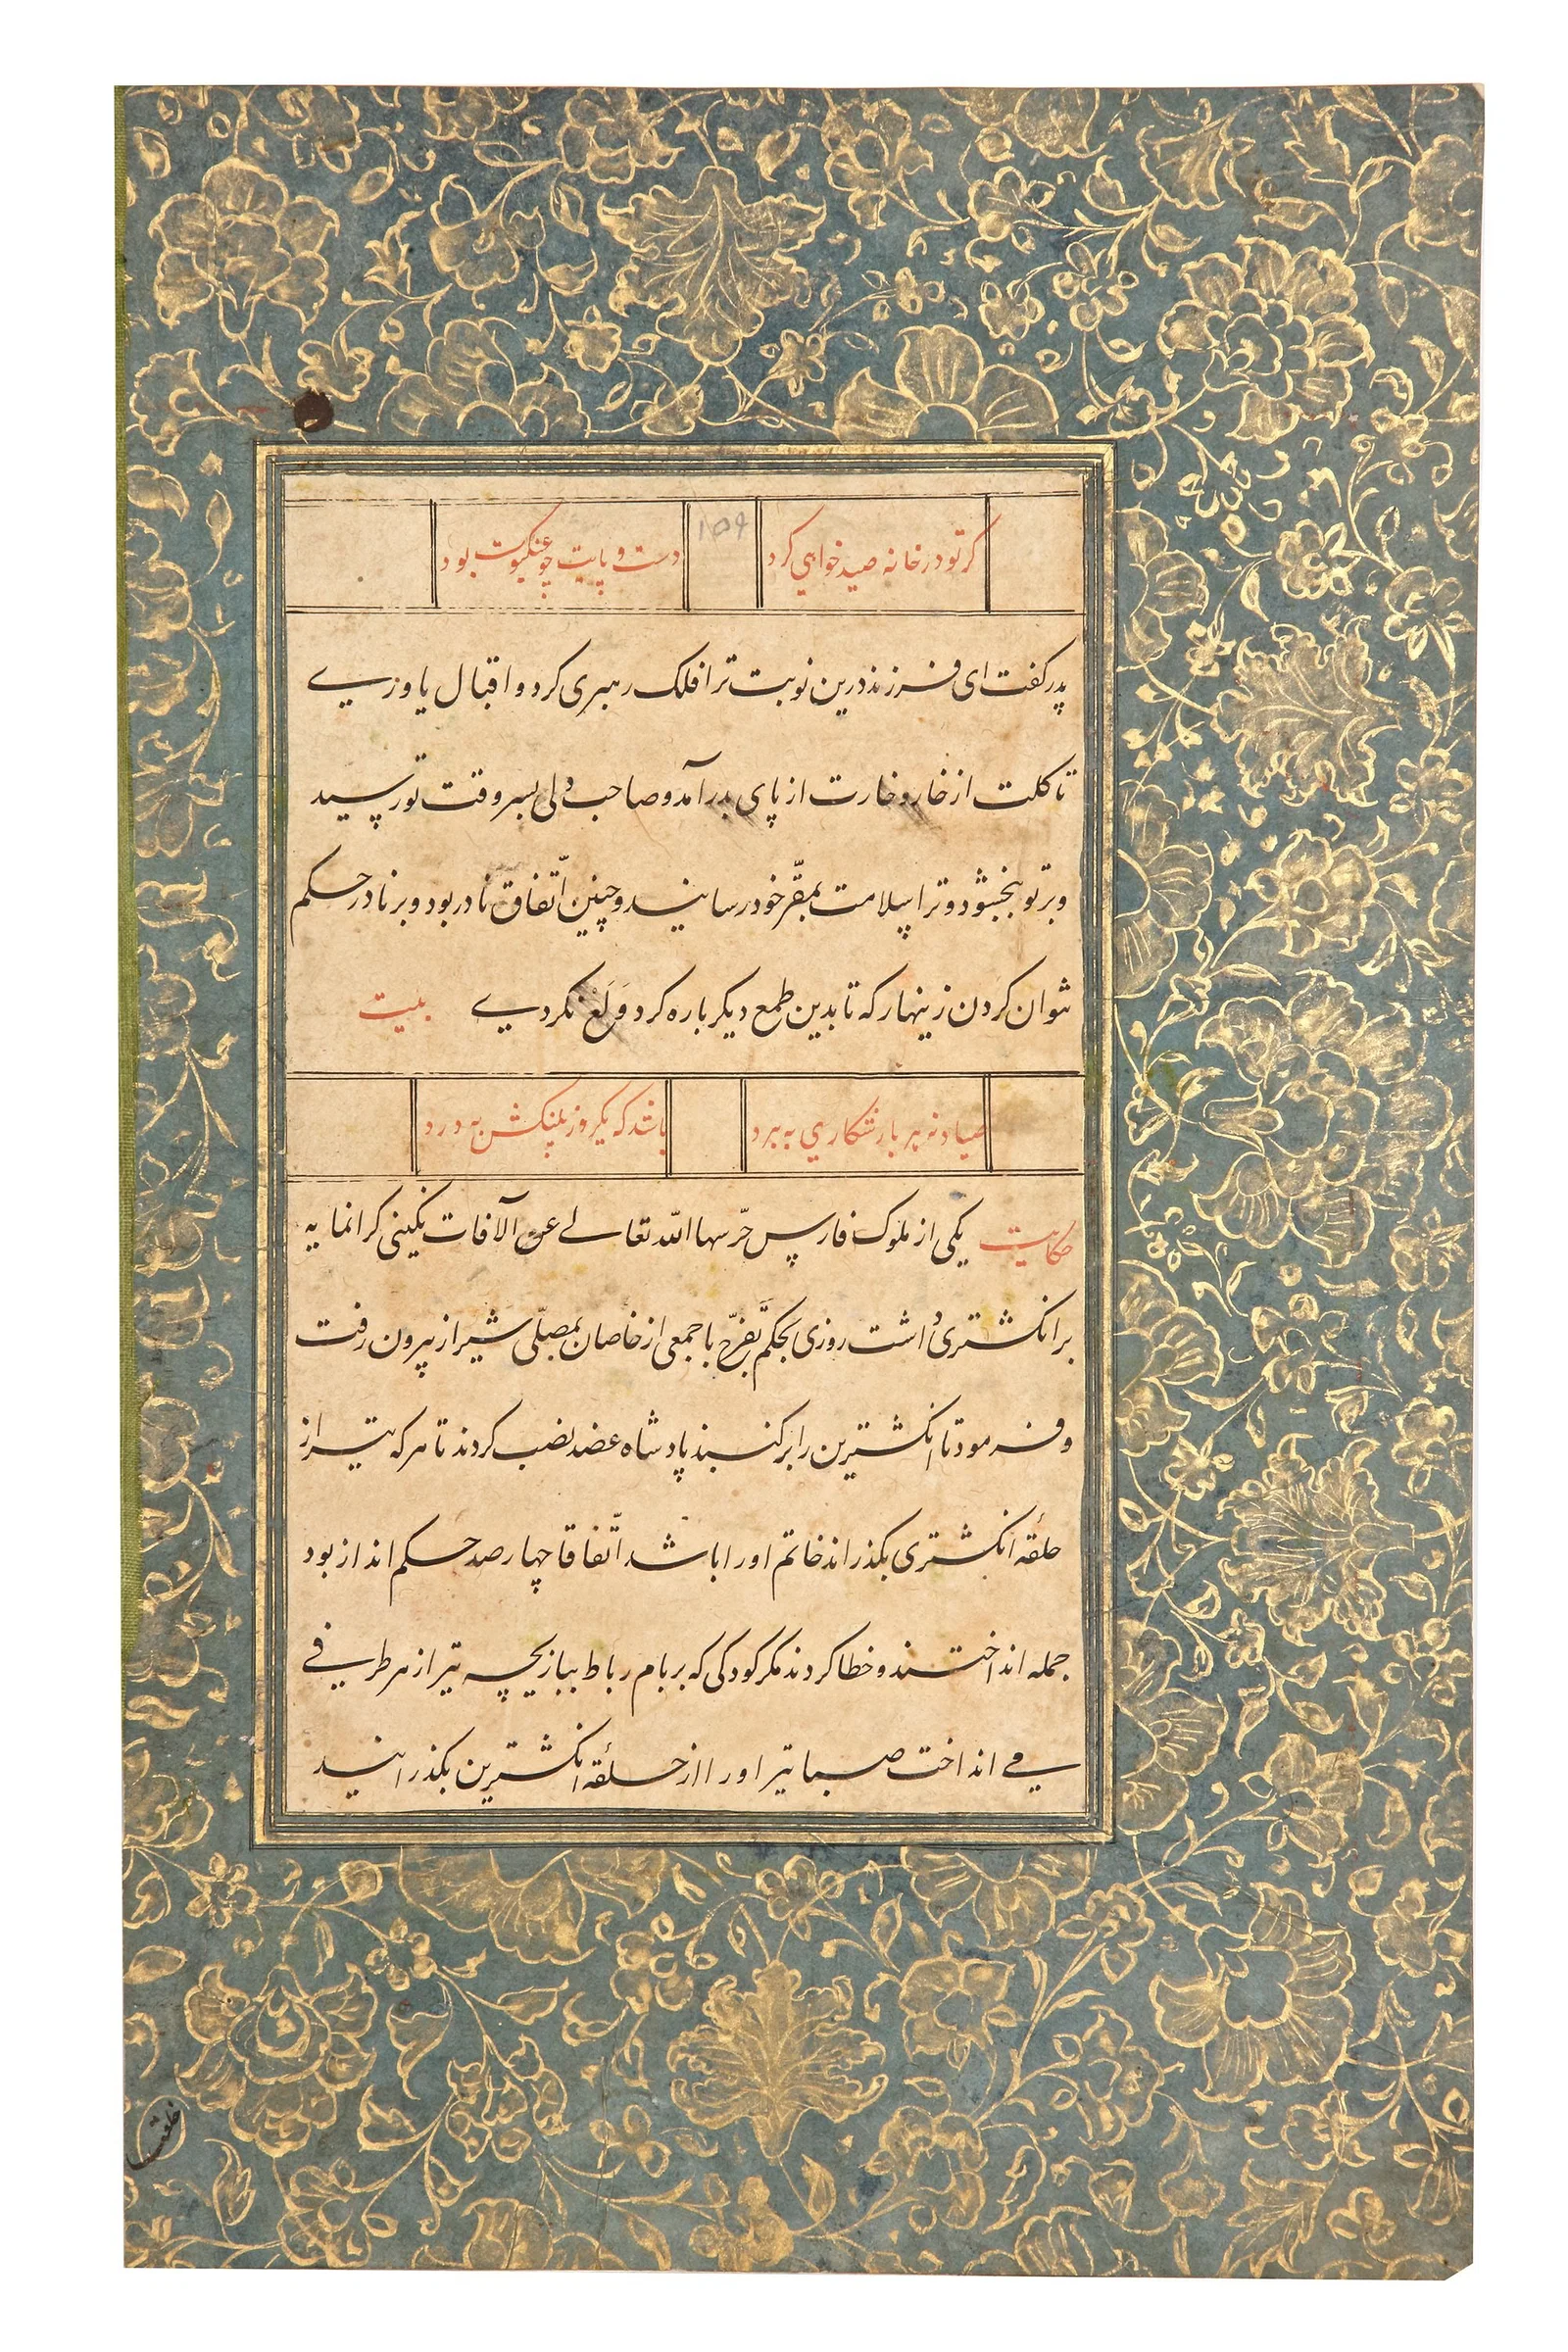 گر تو در خانه صید خواهی کرد دست و پایت چو عنکبوت بود
پدر گفت ای فرزند درین نوبت ترا فلک رهبری کرد و اقبال یاوری
تا گلت از خار و خارت از پای بدر آمد و صاحب دلی بسر وقت تو رسید
و بر تو ببخشود و ترا بسلامت بمقرّ خود رسانید و چنین اتّفاق نادر بود و بر نادر حکم
نتوان کردن زینهار که تا بدین طمع دیگر باره گرد وَلَعْ نگردی بیت
صیاد نه هر بار شکاری به برد باشد که یکروز پلنگش به درد
حکایت یکی از ملوک فارس حرّسها اللّه تعالی عن الآفات نگینی گرانمایه
بر انگشتری داشت روزی بحکم تفرّج با جمعی از خاصان بمصلّی شیراز بیرون رفت
و فرمود تا انگشترین را بر گنبد پادشاه عضد نصب کردند تا هر که تیر از
حلقهٔ انگشتری بگذراند خاتم او را باشد اتّفاقا چهار صد حکم انداز بود
جمله انداختند و خطا کردند مگر کودکی که بر بام رباط ببازیچه تیر از هر طرفی
می انداخت صبا تیر او را از حلقهٔ انگشترین بگذرانید